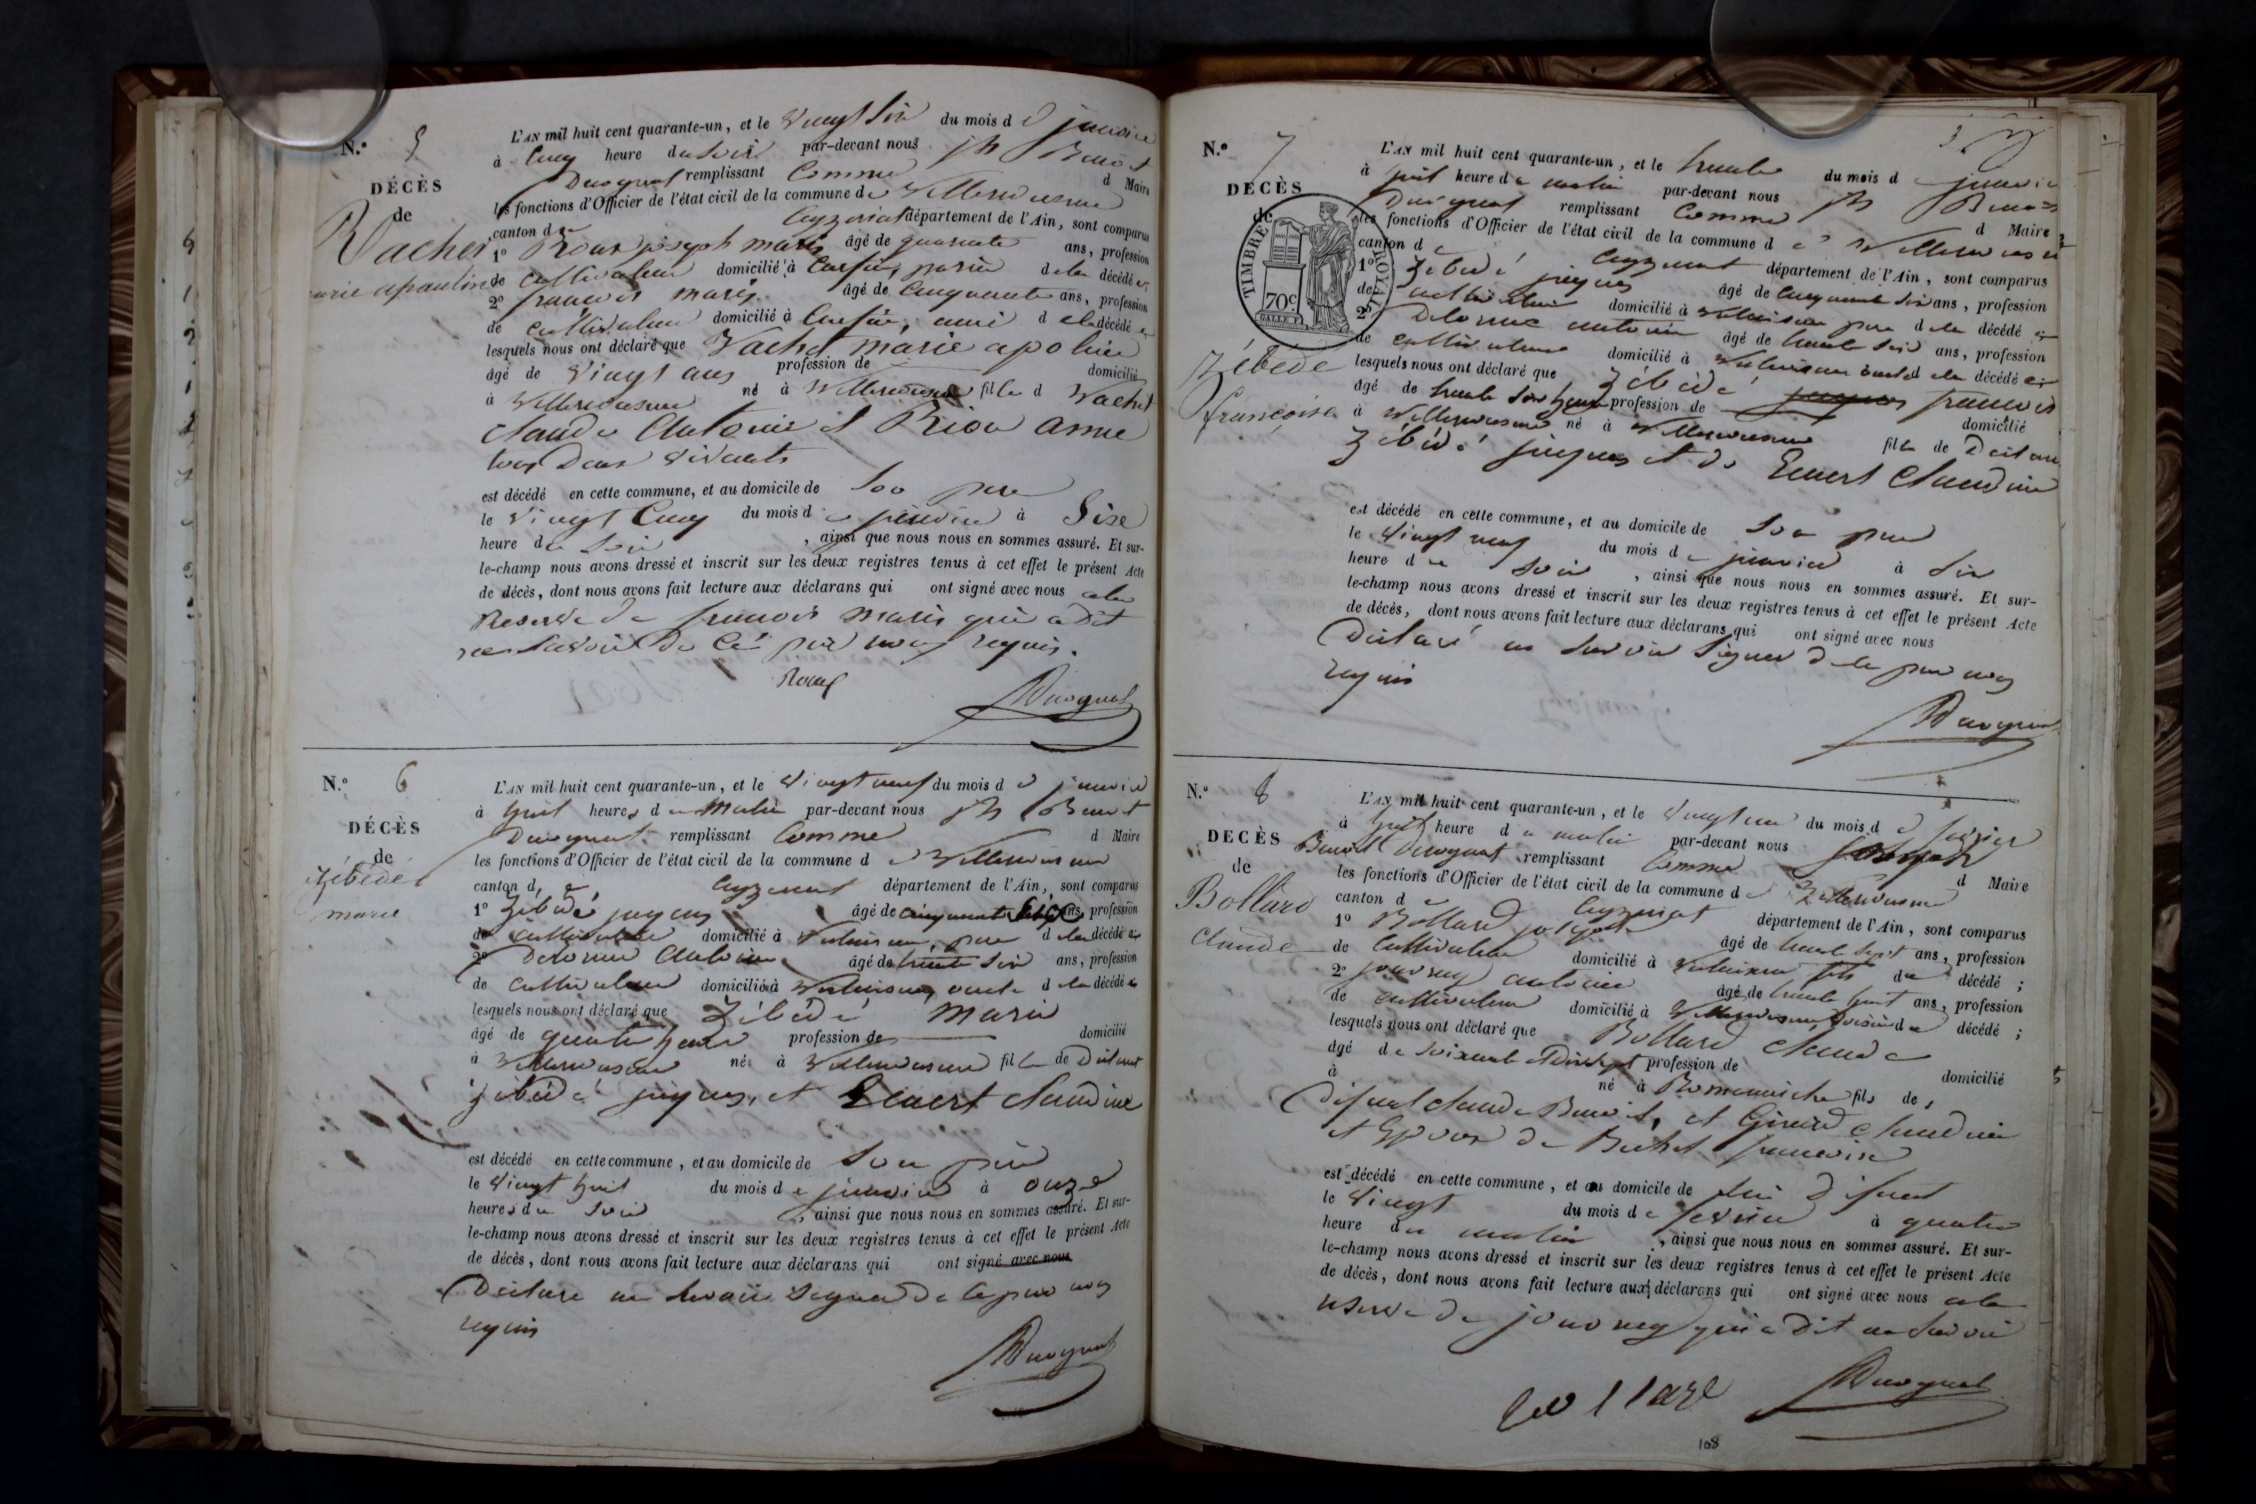 N.o 5
DÉCÈS
de
Vachet
marie apauline
L'AN mil huit cent quarante-un, et le vingt six du mois d e janvier
à cinq heure du soir par-devant nous jh Benoit
Duvquat remplissant comme d Maire
les fonctions d'Officier de l'état civil de la commune de Villereversure
canton de Ceyzeriat département de l'Ain, sont comparus
1o Roux joseph marie âgé de quarante ans, profession
de cultivateur domicilié à voisin de la décédé e
2o françois marie âgé de cinquante ans, profession
de cultivateur domicilié à ami d e la décédé e
lesquels nous ont déclaré que Vachet marie apoline
âgé de vingt ans profession de domicilié
à Villereversure né à Villereversure fille d Vachet
claude Antoine et anne
tous Deux vivants
est décédé en cette commune, et au domicile de son pere
le vingt cinq du mois de janvier à Sixe
heure du soir , ainsi que nous nous en sommes assuré. Et sur-
le-champ nous avons dressé et inscrit sur les deux registres tenus à cet effet le présent Acte
de décès, dont nous avons fait lecture aux déclarans qui ont signé avec nous a la
Reserve de françois marie qui a dit
ne savoir De ce par nous requis.
Roux
N.o 6
DÉCÈS
de
Zébédé
marie
L'AN mil huit cent quarante-un, et le vingt neuf du mois d e janvier
à huit heures du matin par-devant nous jh Benoit
remplissant Comme d Maire
les fonctions d'Officier de l'état civil de la commune d e Villereversure
canton d, e Ceyzeriat département de l'Ain, sont comparus
1o Zébédé jacques âgé de cinquante Sixe ans, profession
de cultivateur domicilié à pere de la décédé e
2o Delorme Antoine âgé de trente six ans, profession
de cultivateur domicilié à oncle de la décédé e
lesquels nous ont déclaré que Zébédé marie
âgé de quarante profession de domicilié
à Villereversure né à Villereversure fille de Defunt
Zébédé jacques, et claudine
est décédé en cette commune, et au domicile de son père
le vingt huit du mois de janvier à onze
heures du soir , ainsi que nous nous en sommes assuré. Et sur-
le-champ nous avons dressé et inscrit sur les deux registres tenus à cet effet le présent Acte
de décès, dont nous avons fait lecture aux déclarans qui ont signé avec nous
Déclaré ne savoir signer de ce par nous
requis
N.o 7
DÉCÈS
de
TIMBRE ROYAL
70c
Zébédé
françoise
L'AN mil huit cent quarante-un, et le trente du mois d e janvier
à huit heure du matin par-devant nous jh Benoit
remplissant Comme d Maire
les fonctions d'Officier de l'état civil de la commune d e Villereversure
canton d e Ceyzeriat département de l'Ain, sont comparus
1o Zébédé jacques âgé de cinquante six ans, profession
de cultivateur domicilié à pere de la décédé e
2o Delorme antoine âgé de trente six ans, profession
de cultivateur domicilié à oncle de la décédé e
lesquels nous ont déclaré que Zébédé jacques françoise
âgé de trente six heures profession de domicilié
à Villereversure né à Villereversure fille de Defunt
Zébédé jacques et de claudine
est décédé en cette commune, et au domicile de son pere
le vingt neuf du mois de janvier à six
heure du soir , ainsi que nous nous en sommes assuré. Et sur-
le-champ nous avons dressé et inscrit sur les deux registres tenus à cet effet le présent Acte
de décès, dont nous avons fait lecture aux déclarans qui ont signé avec nous
Déclaré ne savoir signer de ce par nous
requis
N.o 8
DÉCÈS
de
Bollard
claude
L'AN mil huit cent quarante-un, et le vingt un du mois d e fevrier
à huit heure du matin par-devant nous
Benoit remplissant Comme d Maire
les fonctions d'Officier de l'état civil de la commune d e Villereversure
canton d e Ceyzeriat département de l'Ain, sont comparus
1o Bollard joseph âgé de trente sept ans, profession
de cultivateur domicilié à fils du décédé ;
2o antoine âgé de trente huit ans, profession
de cultivateur domicilié à Villereversure, voisin du décédé ;
lesquels nous ont déclaré que Bollard claude
âgé de soixante et dix sept profession de domicilié
à né à fils de,
Defunt claude Benoit, et claudine
et Epoux de françoise
est décédé en cette commune, et au domicile de lui Defunt
le vingt du mois de fevrier à quatre
heure du matin , ainsi que nous nous en sommes assuré. Et sur-
le-champ nous avons dressé et inscrit sur les deux registres tenus à cet effet le présent Acte
de décès, dont nous avons fait lecture aux déclarans qui ont signé avec nous a la
reserve de qui a dit ne savoir
bollard
108